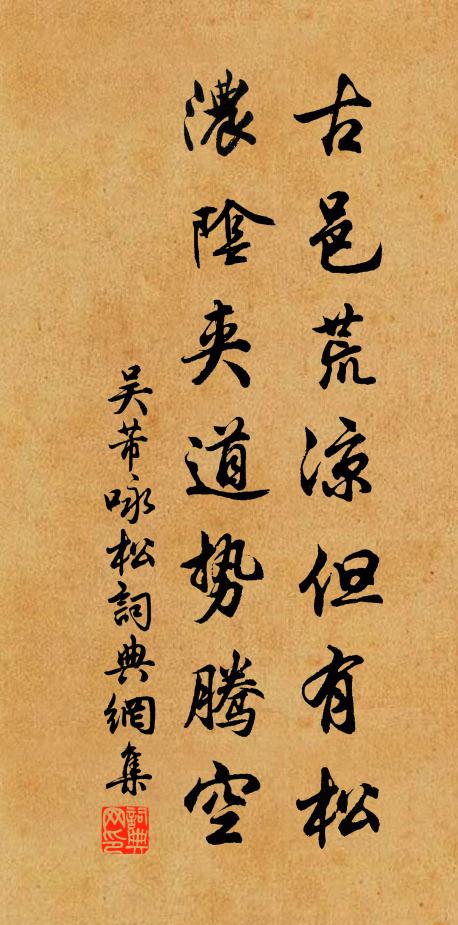 古邑荒凉但有松
濃陰夹道势騰空
吴芾咏松詞典網集
詞典网印